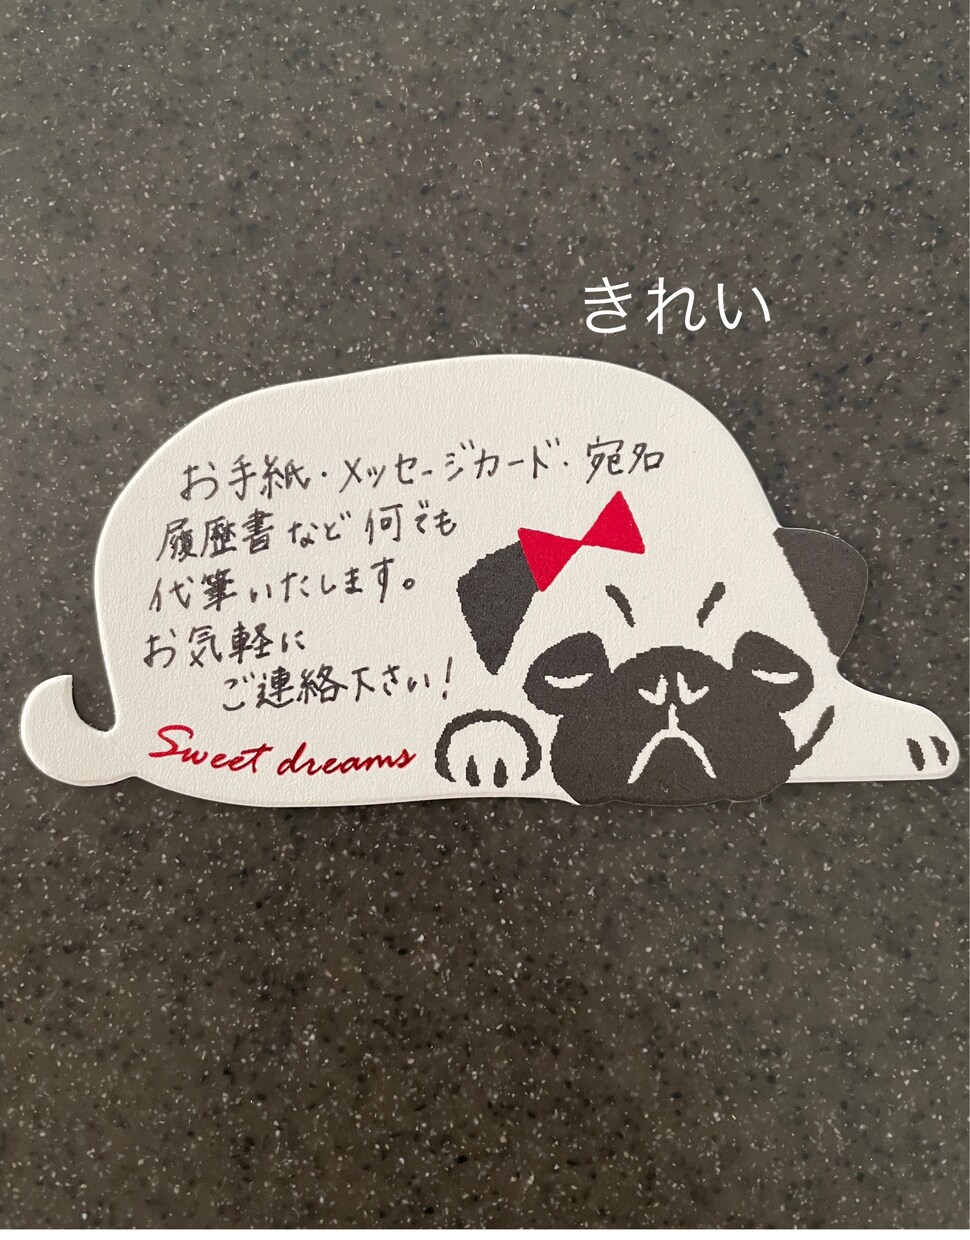 きれい
お手紙・メッセージカード・宛名
履歴書など何でも
代筆いたします。
お気軽に
ご連絡下さい!
Sweet dreams